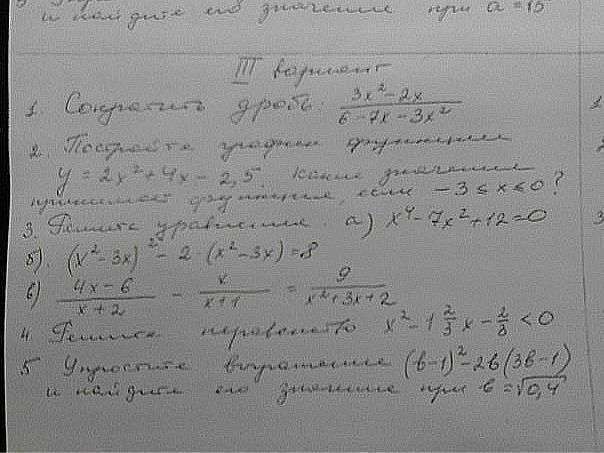 и найдите его значение при a = 15
III вариант
1. Сократить дробь: (3x² - 2x)/(6 - 7x - 3x²)
2. Постройте график функции
y = 2x² + 4x - 2,5. какие значения
принимает функция, если -3 ≤ x ≤ 0?
3. Решите уравнения. а) x⁴ - 7x² + 12 = 0
б). (x² - 3x)² - 2 · (x² - 3x) = 8
в) (4x - 6)/(x + 2) - x/(x + 1) = 9/(x² + 3x + 2)
4. Решите неравенство x² - 1 2/3 x - 2/3 < 0
5 Упростите выражение (b - 1)² - 2b(3b - 1)
и найдите его значение при b = √0,4